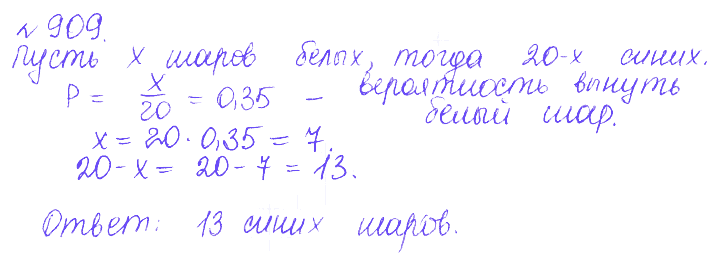 № 909.
Пусть x шаров белых, тогда 20-x синих.
P = x/20 = 0,35 — вероятность вынуть
белый шар.
x = 20 · 0,35 = 7.
20-x = 20-7 = 13.
Ответ: 13 синих шаров.